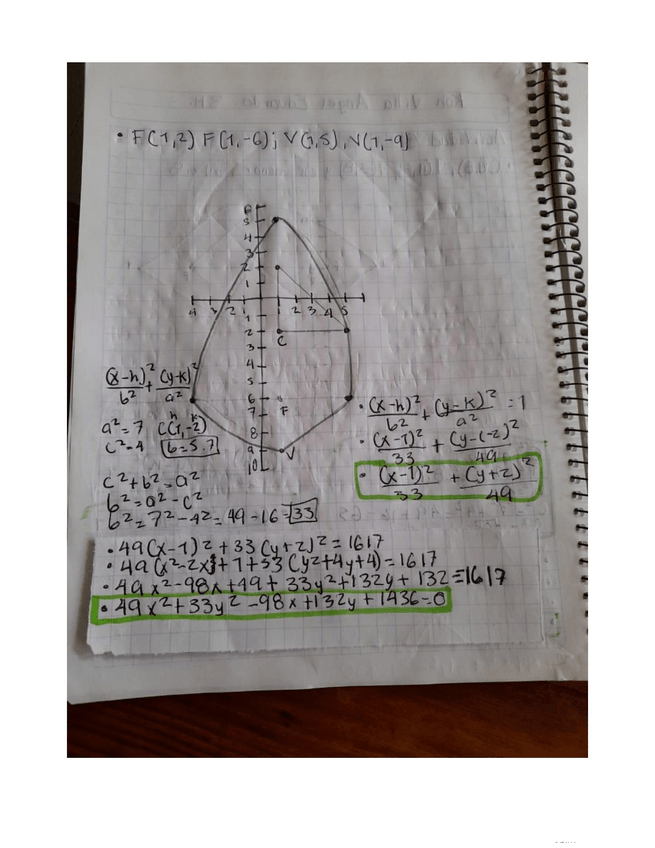 • F(1,2) F(1,-6); V(1,5), V(1,-9)
6
5
4
3
2
1
4 3 2 1 1 2 3 4 5
2
3
4
5
6
7
8
9
10
C
F
V
(x-h)²/b² + (y-k)²/a²
h k
a²=7 C(1,-2)
c²=4 b=5.7
c²+b²=a²
b²=a²-c²
b²=7²-4²=49-16=33
• (x-h)²/b² + (y-k)²/a² = 1
• (x-1)²/33 + (y-(-2)²/49
• (x-1)²/33 + (y+2)²/49
• 49(x-1)²+33(y+2)²=1617
• 49(x²-2x+1+33(y²+4y+4)=1617
• 49x²-98x+49+33y²+132y+132=1617
• 49x²+33y²-98x+132y+1436=0